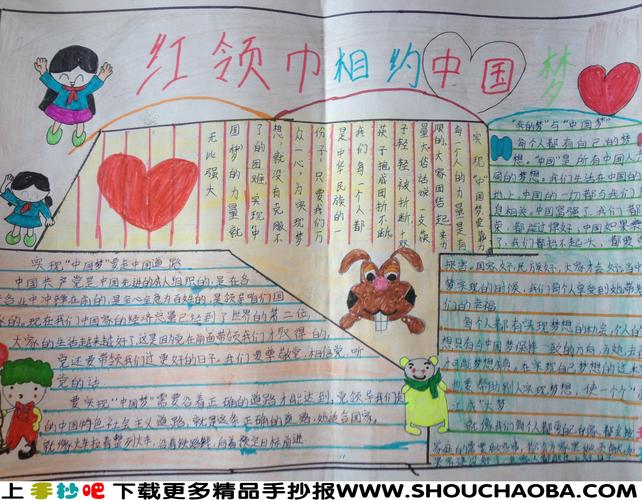 红领巾相约中国梦
实现“中国梦要靠力
每一个人的力量是有
限的,大家团结起来力
量大俗话说:一支筷
子轻轻被折断,十双
筷子抱成团折不断,
我们每一个人都
是中华民族的一
份子,只要我们万
众一心,为实现梦
想,就没有克服不
了的困难,实现中
国梦的力量就
无比强大
“我的梦”与“中国梦”
每个都有自己的梦
想,“中国”是所有中国人
同的梦想。我们生活在中国的
上,中国的一切都与我们
自相关,中国富强了,我们都
荣,都能过得好,中国如果
了,我们都抬不起头,都要
损害。国家好,民族好,大家才会好,当中
梦实现的时候,我们每个人享受到她带
们的幸福
每个人都有实现梦想的机会,个人的
想只有与中国梦保持一致的方向,
才可能梦想成真,在实现自己梦想的过
也要帮助别人实现梦想,使一个个
实现“中国梦”要走中国道路
中国共产党是中国先进的有人组织的,是在各
各业中冲锋在前的,是全心全意为百姓的,是领导咱们国
家的。现在我们中国家的经济总量已经到了世界的第二位,
大家的生活越来越好了,这是因党在前面带领我们才取得的,
党还要带领我们过更好的日子,我们要敬党,相信党,听
党的话
要实现“中国梦”需要沿着正确的道路才能达到,党领导我们
的中国特色社会主义道路,就是这条正确的道路,她适合国家,
就像火车拉着整列火车,沿着铁路跑,向着预定目标前进
上手抄吧下载更多精品手抄报WWW.SHOUCHAOBA.COM!